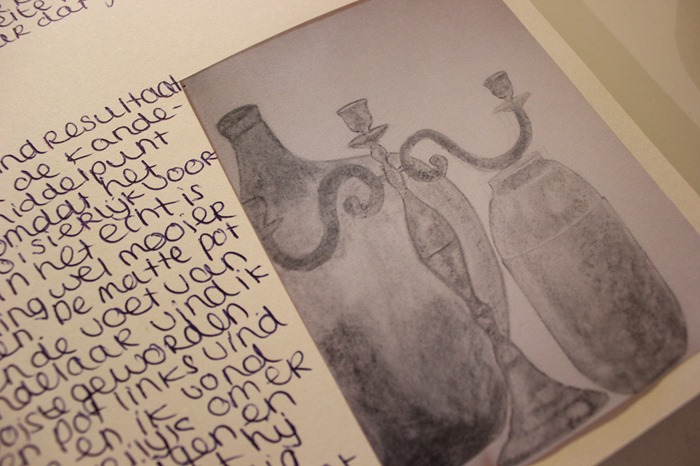 eite
ar dat
ndresultaat
de kande-
iddelpunt
omdat het
oi sierlijk voor
n het echt is
ing wel mooier
en. De matte pot
nde voet van
ndelaar vind ik
oiste geworden
en pot links vind
e en ik vond
eilijk om er
gen en
t hij